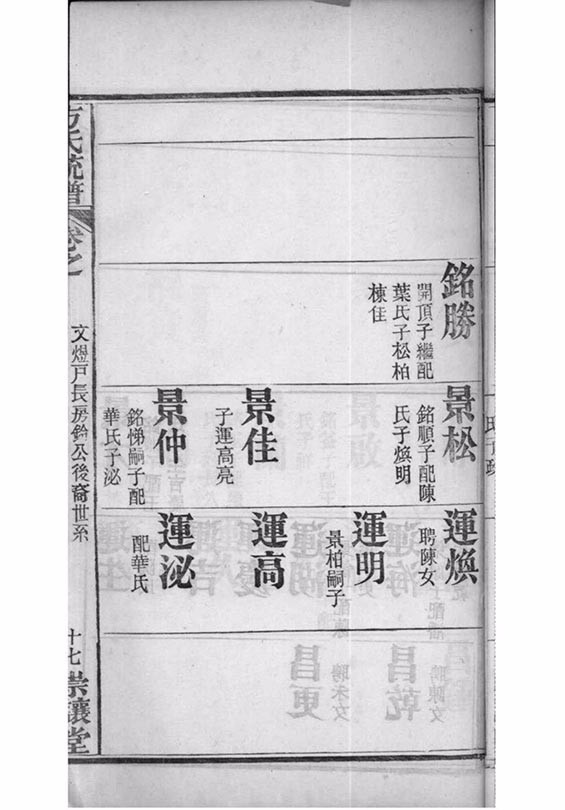 銘勝
開頂子繼配
葉氏子松柏
棟佳
景松
銘順子配陳
氏子煥明
景佳
子運高亮
景仲
銘悌嗣子配
華氏子泌
運煥
聘陳女
運明
景柏嗣子
運高
運泌
配華氏
方氏統譜
卷之
文煜戸長房鈴公後裔世系
十七
崇讓堂